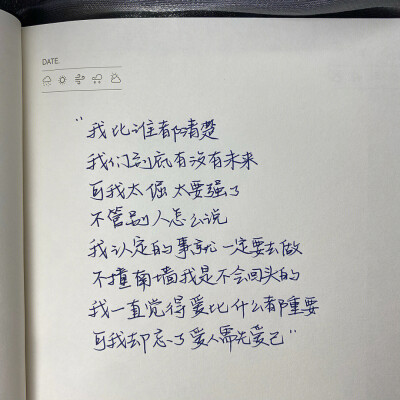 DATE.
“我比谁都清楚
我们到底有没有未来
可我太倔 太要强了
不管别人怎么说
我认定的事就一定要去做
不撞南墙我是不会回头的
我一直觉得爱比什么都重要
可我却忘了爱人需先爱己”